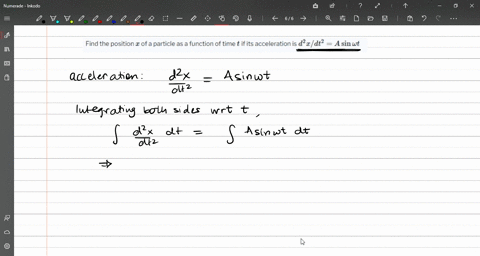 Numerade - Inkodo
6/6
Find the position x of a particle as a function of time t if its acceleration is d²x/dt² = A sin ωt
acceleration: d²x/dt² = A sin ωt
Integrating both sides wrt t,
∫ d²x/dt² dt = ∫ A sin ωt dt
⇒